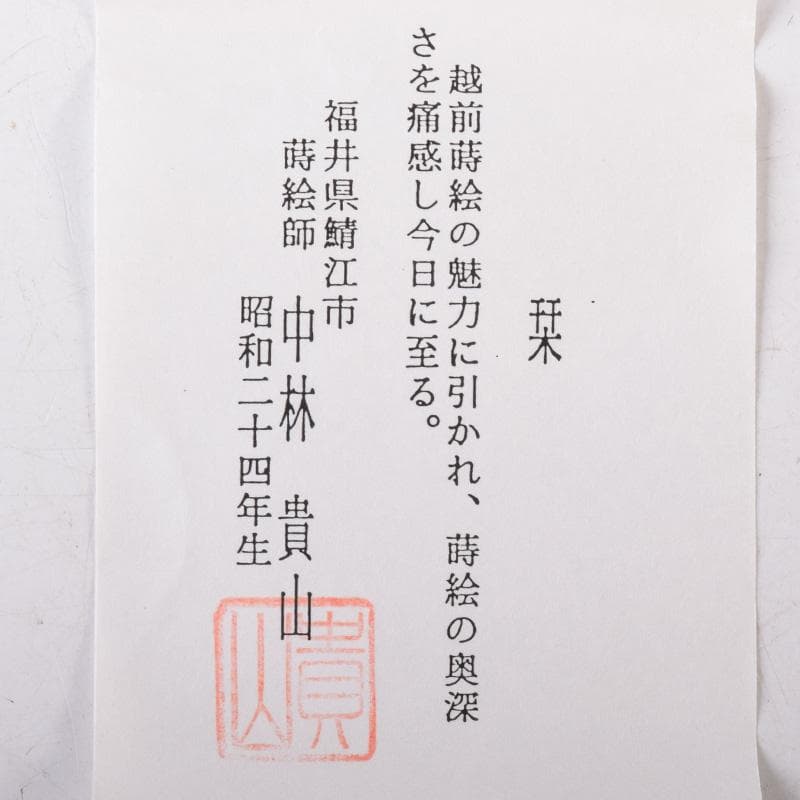 栞
越前蒔絵の魅力に引かれ、蒔絵の奥深
さを痛感し今日に至る。
福井県鯖江市
蒔絵師 中林 貴山
昭和二十四年生
貴山